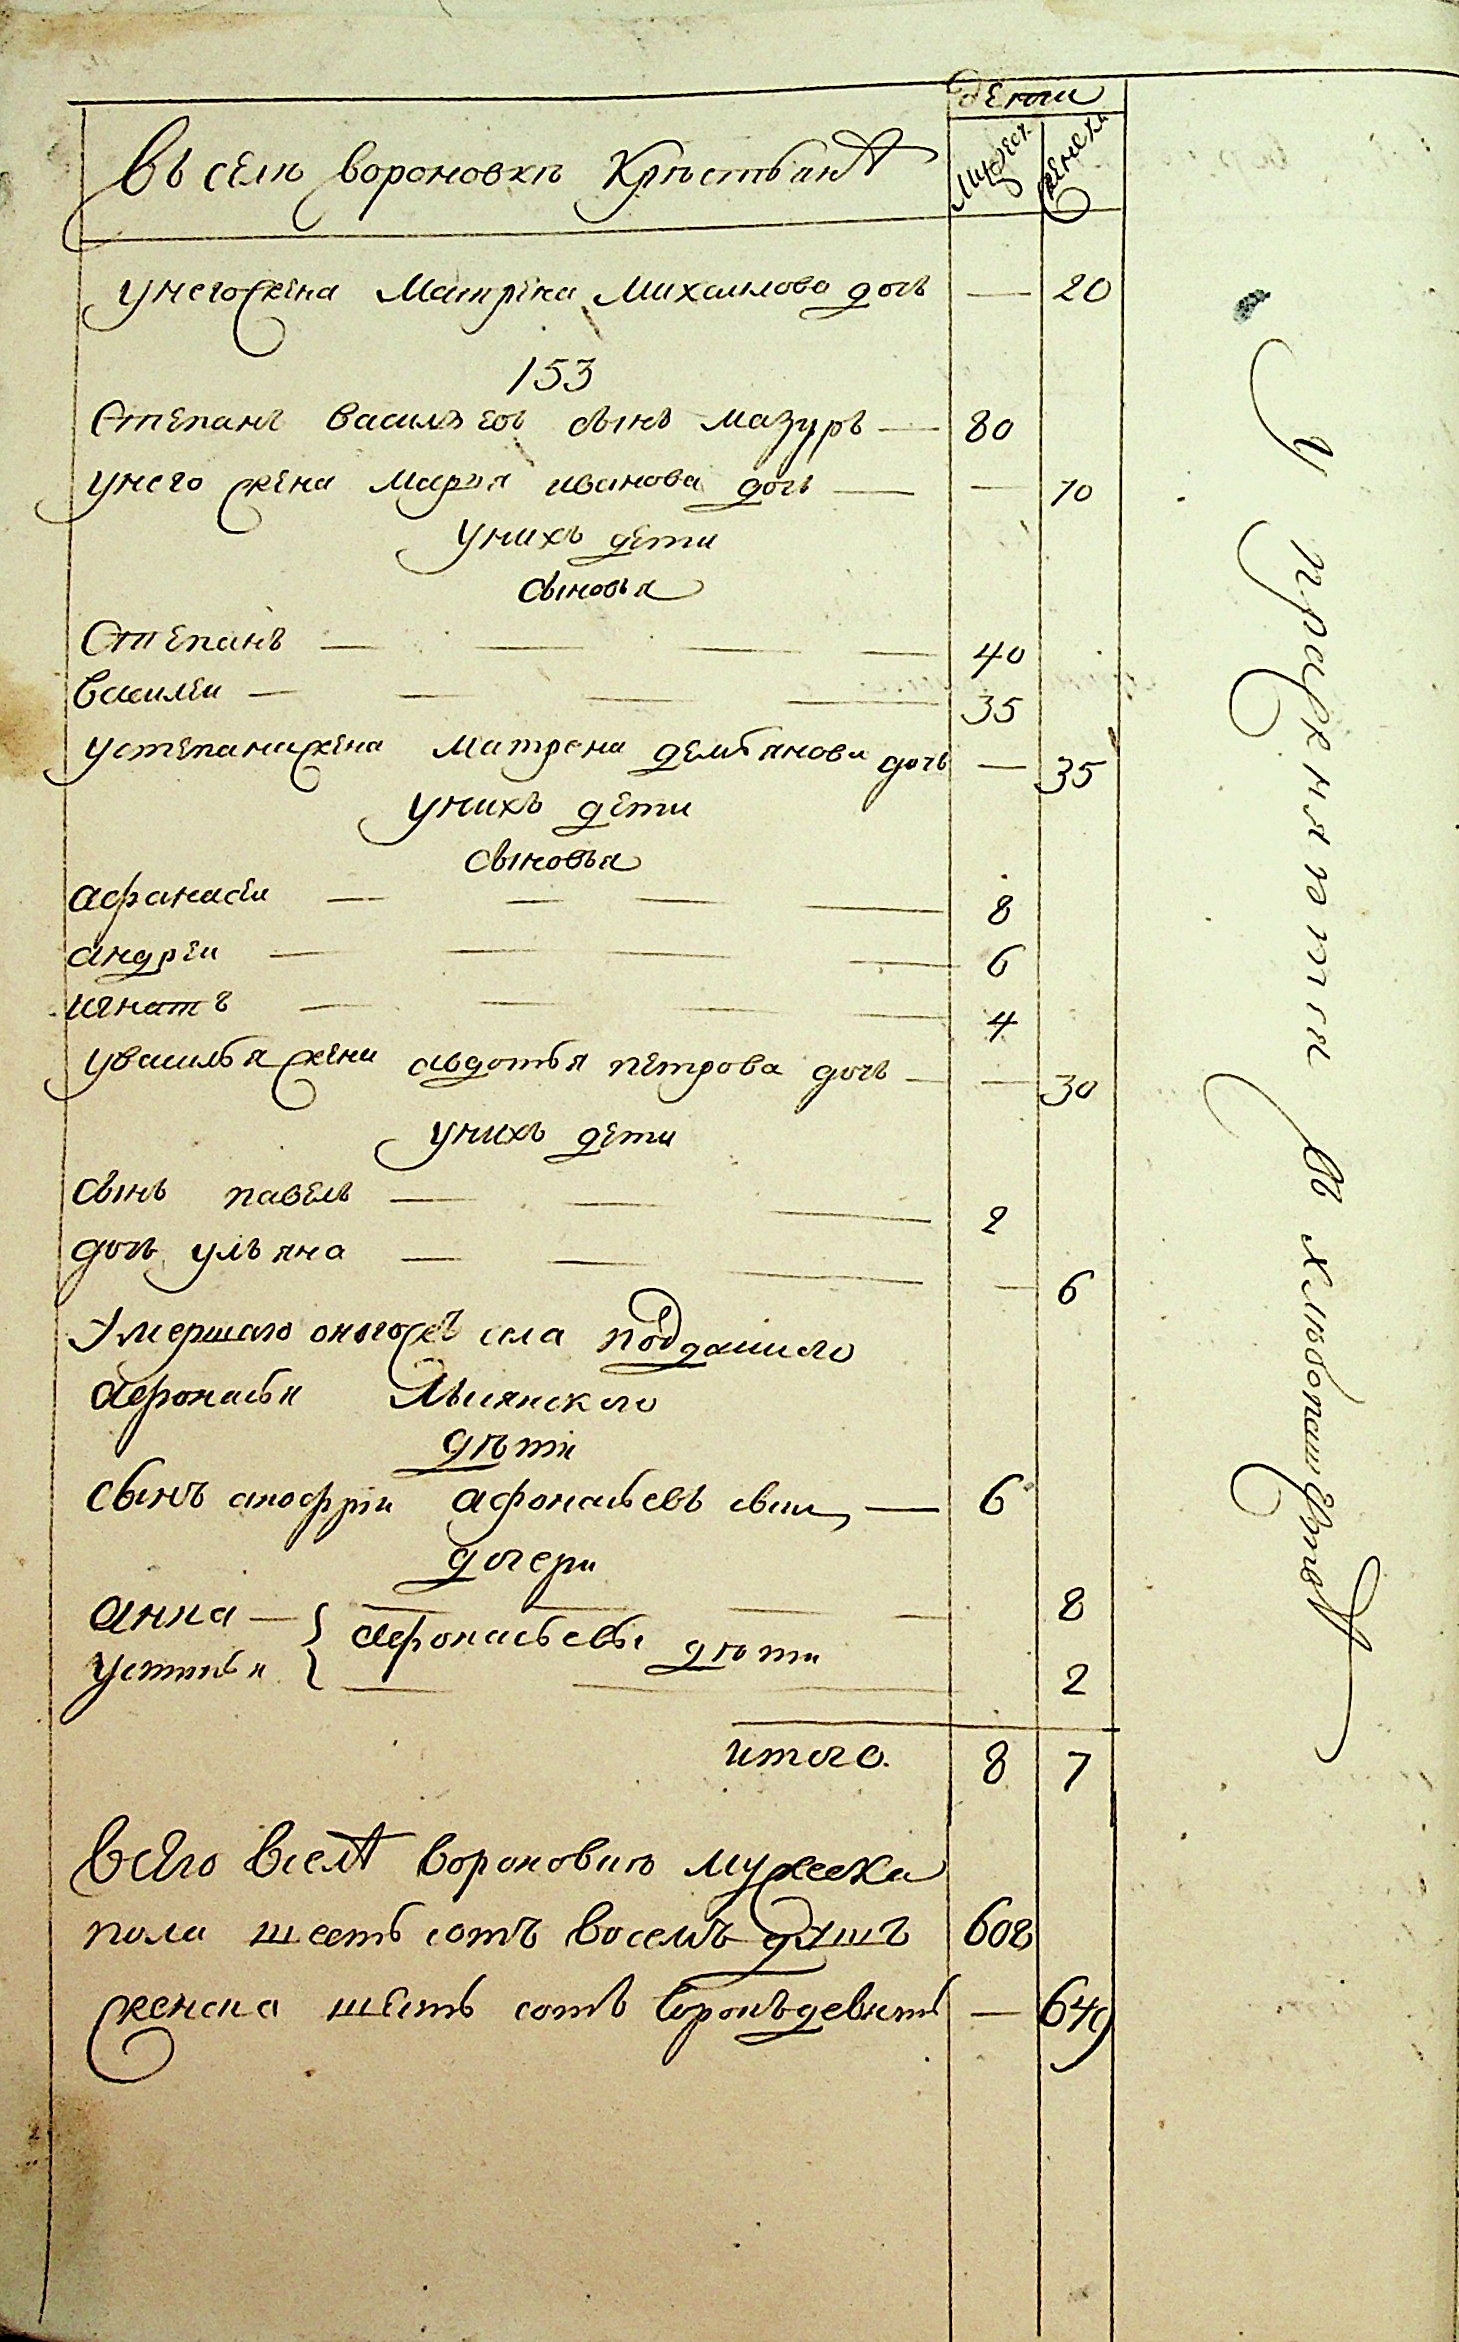 детги
Въ селѣ Вороновкѣ Крѣстьянъ
мужеск:
женска
у него жена Матрена Михаилова дочь — 20
153
Степанъ Васильевъ сынъ Мазуръ — 80
у него жена Марья Иванова дочь — — 70
у нихъ дети
сыновья
Степанъ — — — — 40
Василеи — — — — 35
у степана жена Матрона демьянова дочь — 35
у нихъ дети
сыновья
афанасеи — — — — 8
андреи — — — 6
игнатъ — — — — 4
у василья жена авдотья петрова дочь — — 30
у нихъ дети
сынъ павелъ — — — 2
дочь ульяна — — — — 6
Умершаго оного жъ села подданного
афонасья Лысянского
дѣти
сынъ анофріи афонасьевъ сынъ — 6
дочери
анна — — — — — 8
афонасьевы дѣти
устинья — — 2
итого. 8 7
всего в селѣ вороновки мужеска
пола шесть сотъ восемъ душъ 608
женска шесть сотъ сорокъ девять — 649